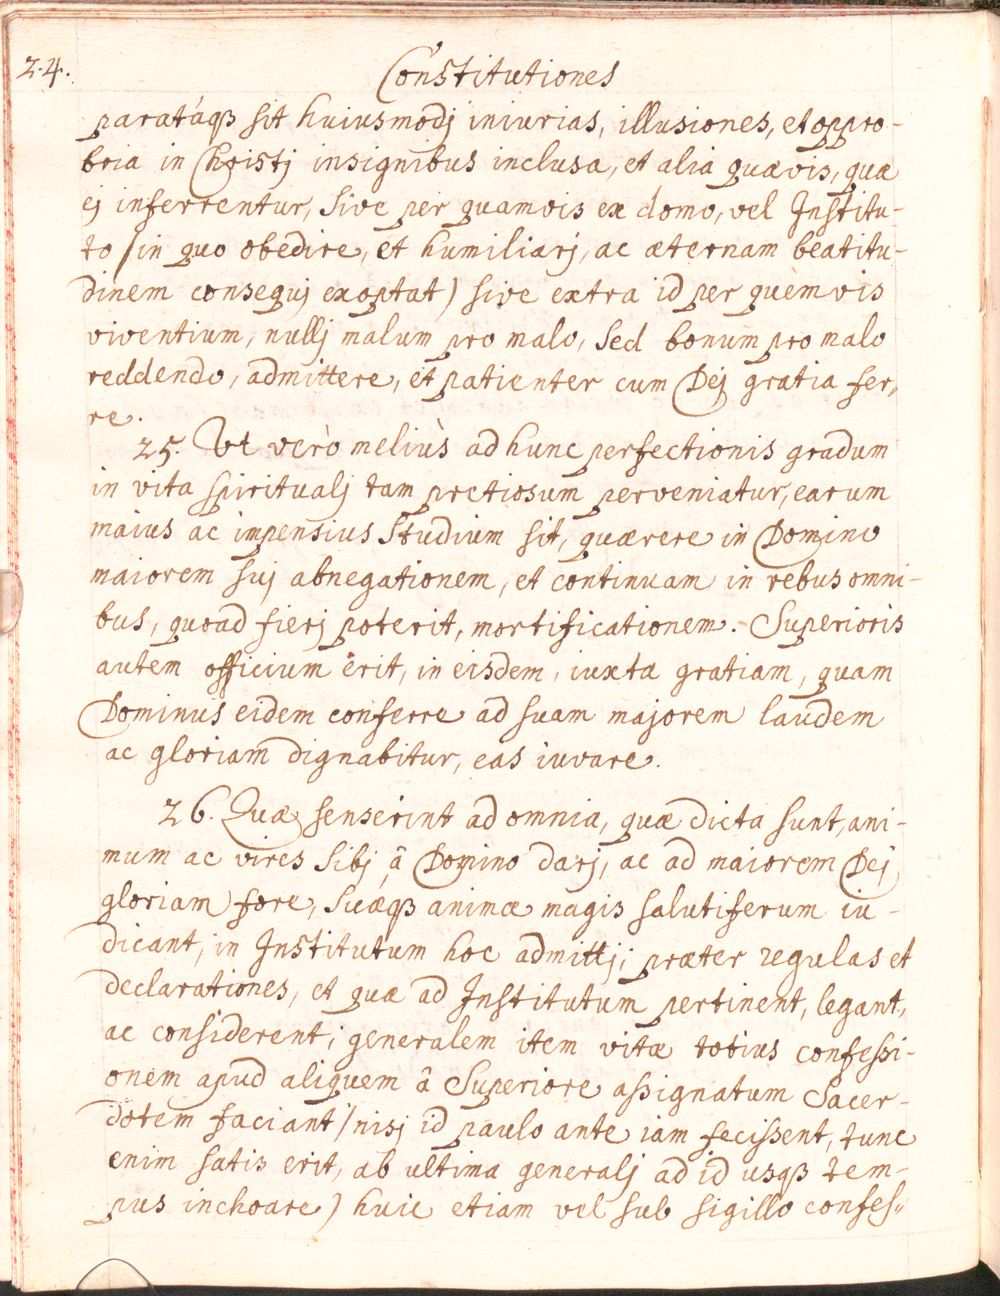 24.
Constitutiones
paratáqꝫ sit huiusmodj iniurias, illusiones, et oppro-
bria in Christj insignibus inclusa, et alia quævis, quæ
ej inferrentur, sive per quamvis ex domo, vel Institu-
to /in quo obedire, et humiliarj, ac æternam beatitu-
dinem consequj exoptat) sive extra id per quèmvis
viventium, nullj malum pro malo, sed bonum pro malo
reddendo, admittere, et patienter cum Dej gratia fer,
re.
25. Vt verò meliùs ad hunc perfectionis gradum
in vita spiritualj tam pretiosum perveniatur, earum
maius ac impensius studium sit, quærere in Domino
maiorem suj abnegationem, et continuam in rebus omni-
bus, quoad fierj poterit, mortificationem. Superioris
autem officium erit, in eisdem, iuxta gratiam, quam
Dominus eidem conferre ad suam majorem laudem
ac gloriam dignabitur, eas iuvare.
26. Quæ senserint ad omnia, quæ dicta sunt, ani-
mum ac vires sibj â Domino darj, ac ad maiorem Dej
gloriam fore, suáqꝫ animæ magis salutiferum iu-
dicant, in Institutum hoc admittj; præter regulas et
declarationes, et quæ ad Institutum pertinent, legant,
ac considerent; generalem item vitæ totius confessi-
onem apud aliquem â Superiore assignatum Sacer-
dotem faciant /nisj id paulo ante iam fecissent, tunc
enim satis erit, ab ultima generalj ad id usqꝫ tem-
pus inchoare) huic etiam vel sub sigillo confes-